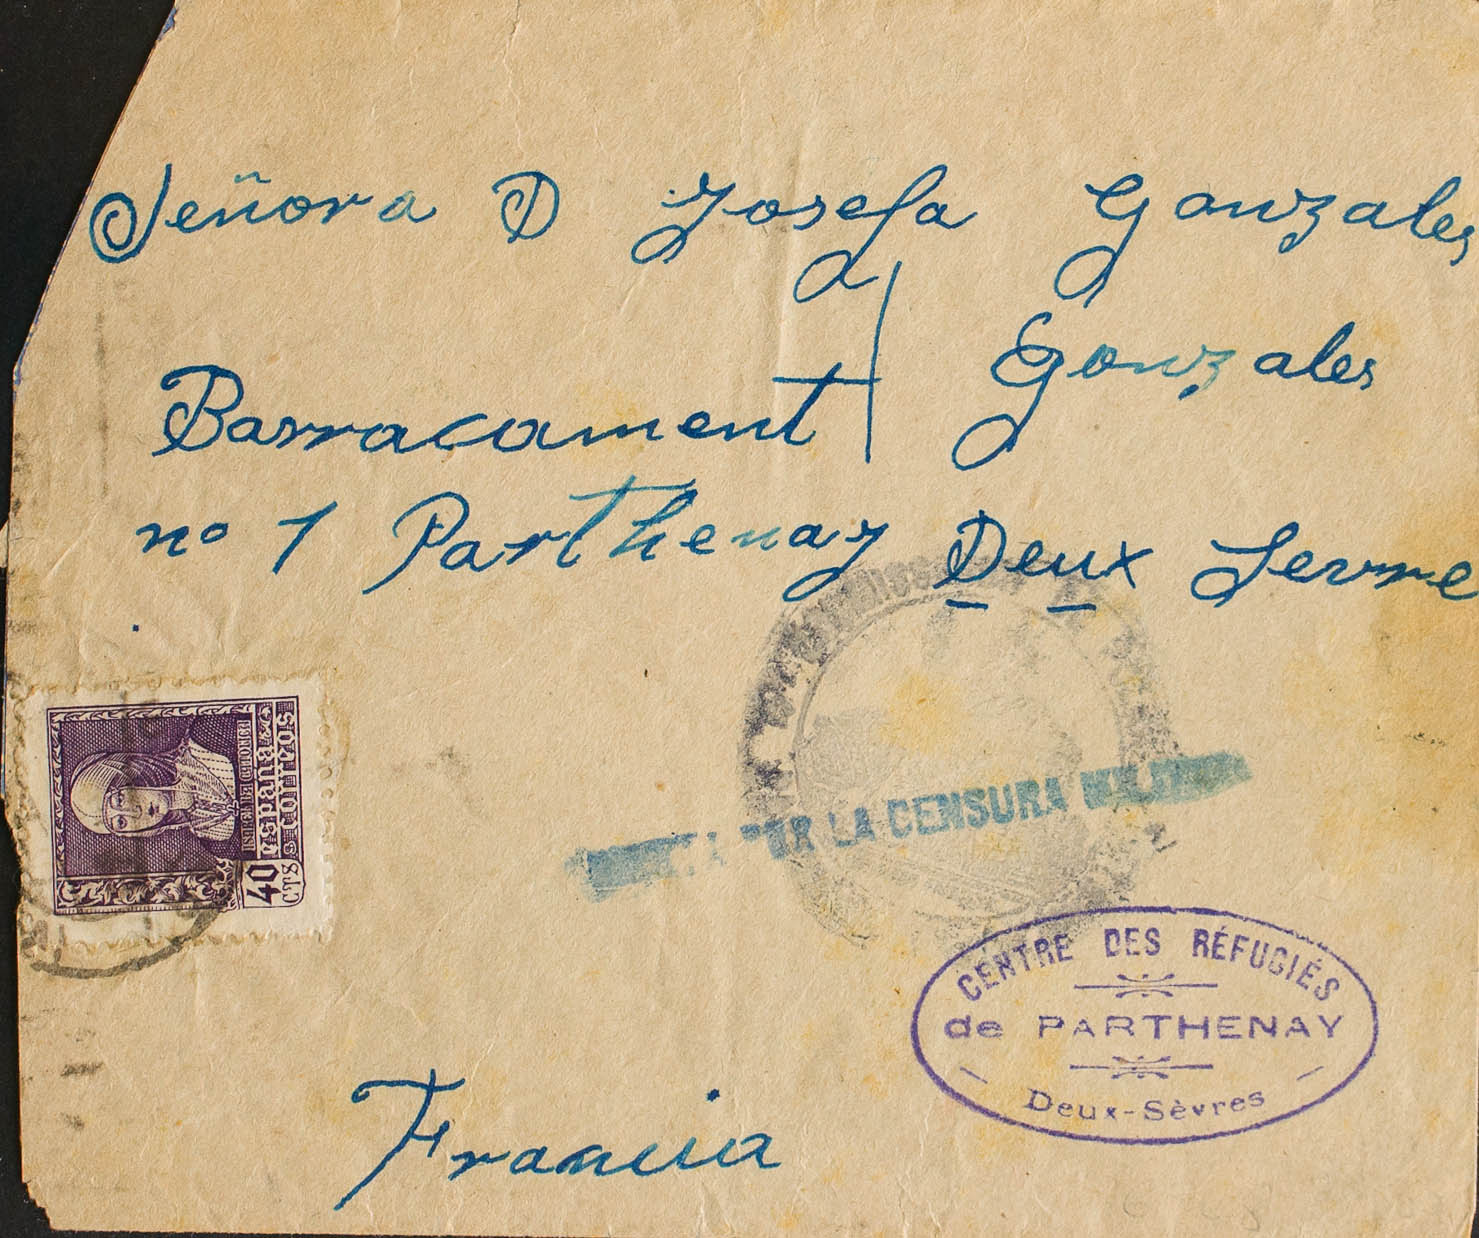 Señora Dª Josefa Gonzales
Gonzales
Barracament
nº 1 Parthenay Deux Sevre
ISABEL LA CATOLICA
España
Correos
40 CTS
POR LA CENSURA MILITAR
CENTRE DES RÉFUGIÉS
de PARTHENAY
Deux-Sèvres
Francia